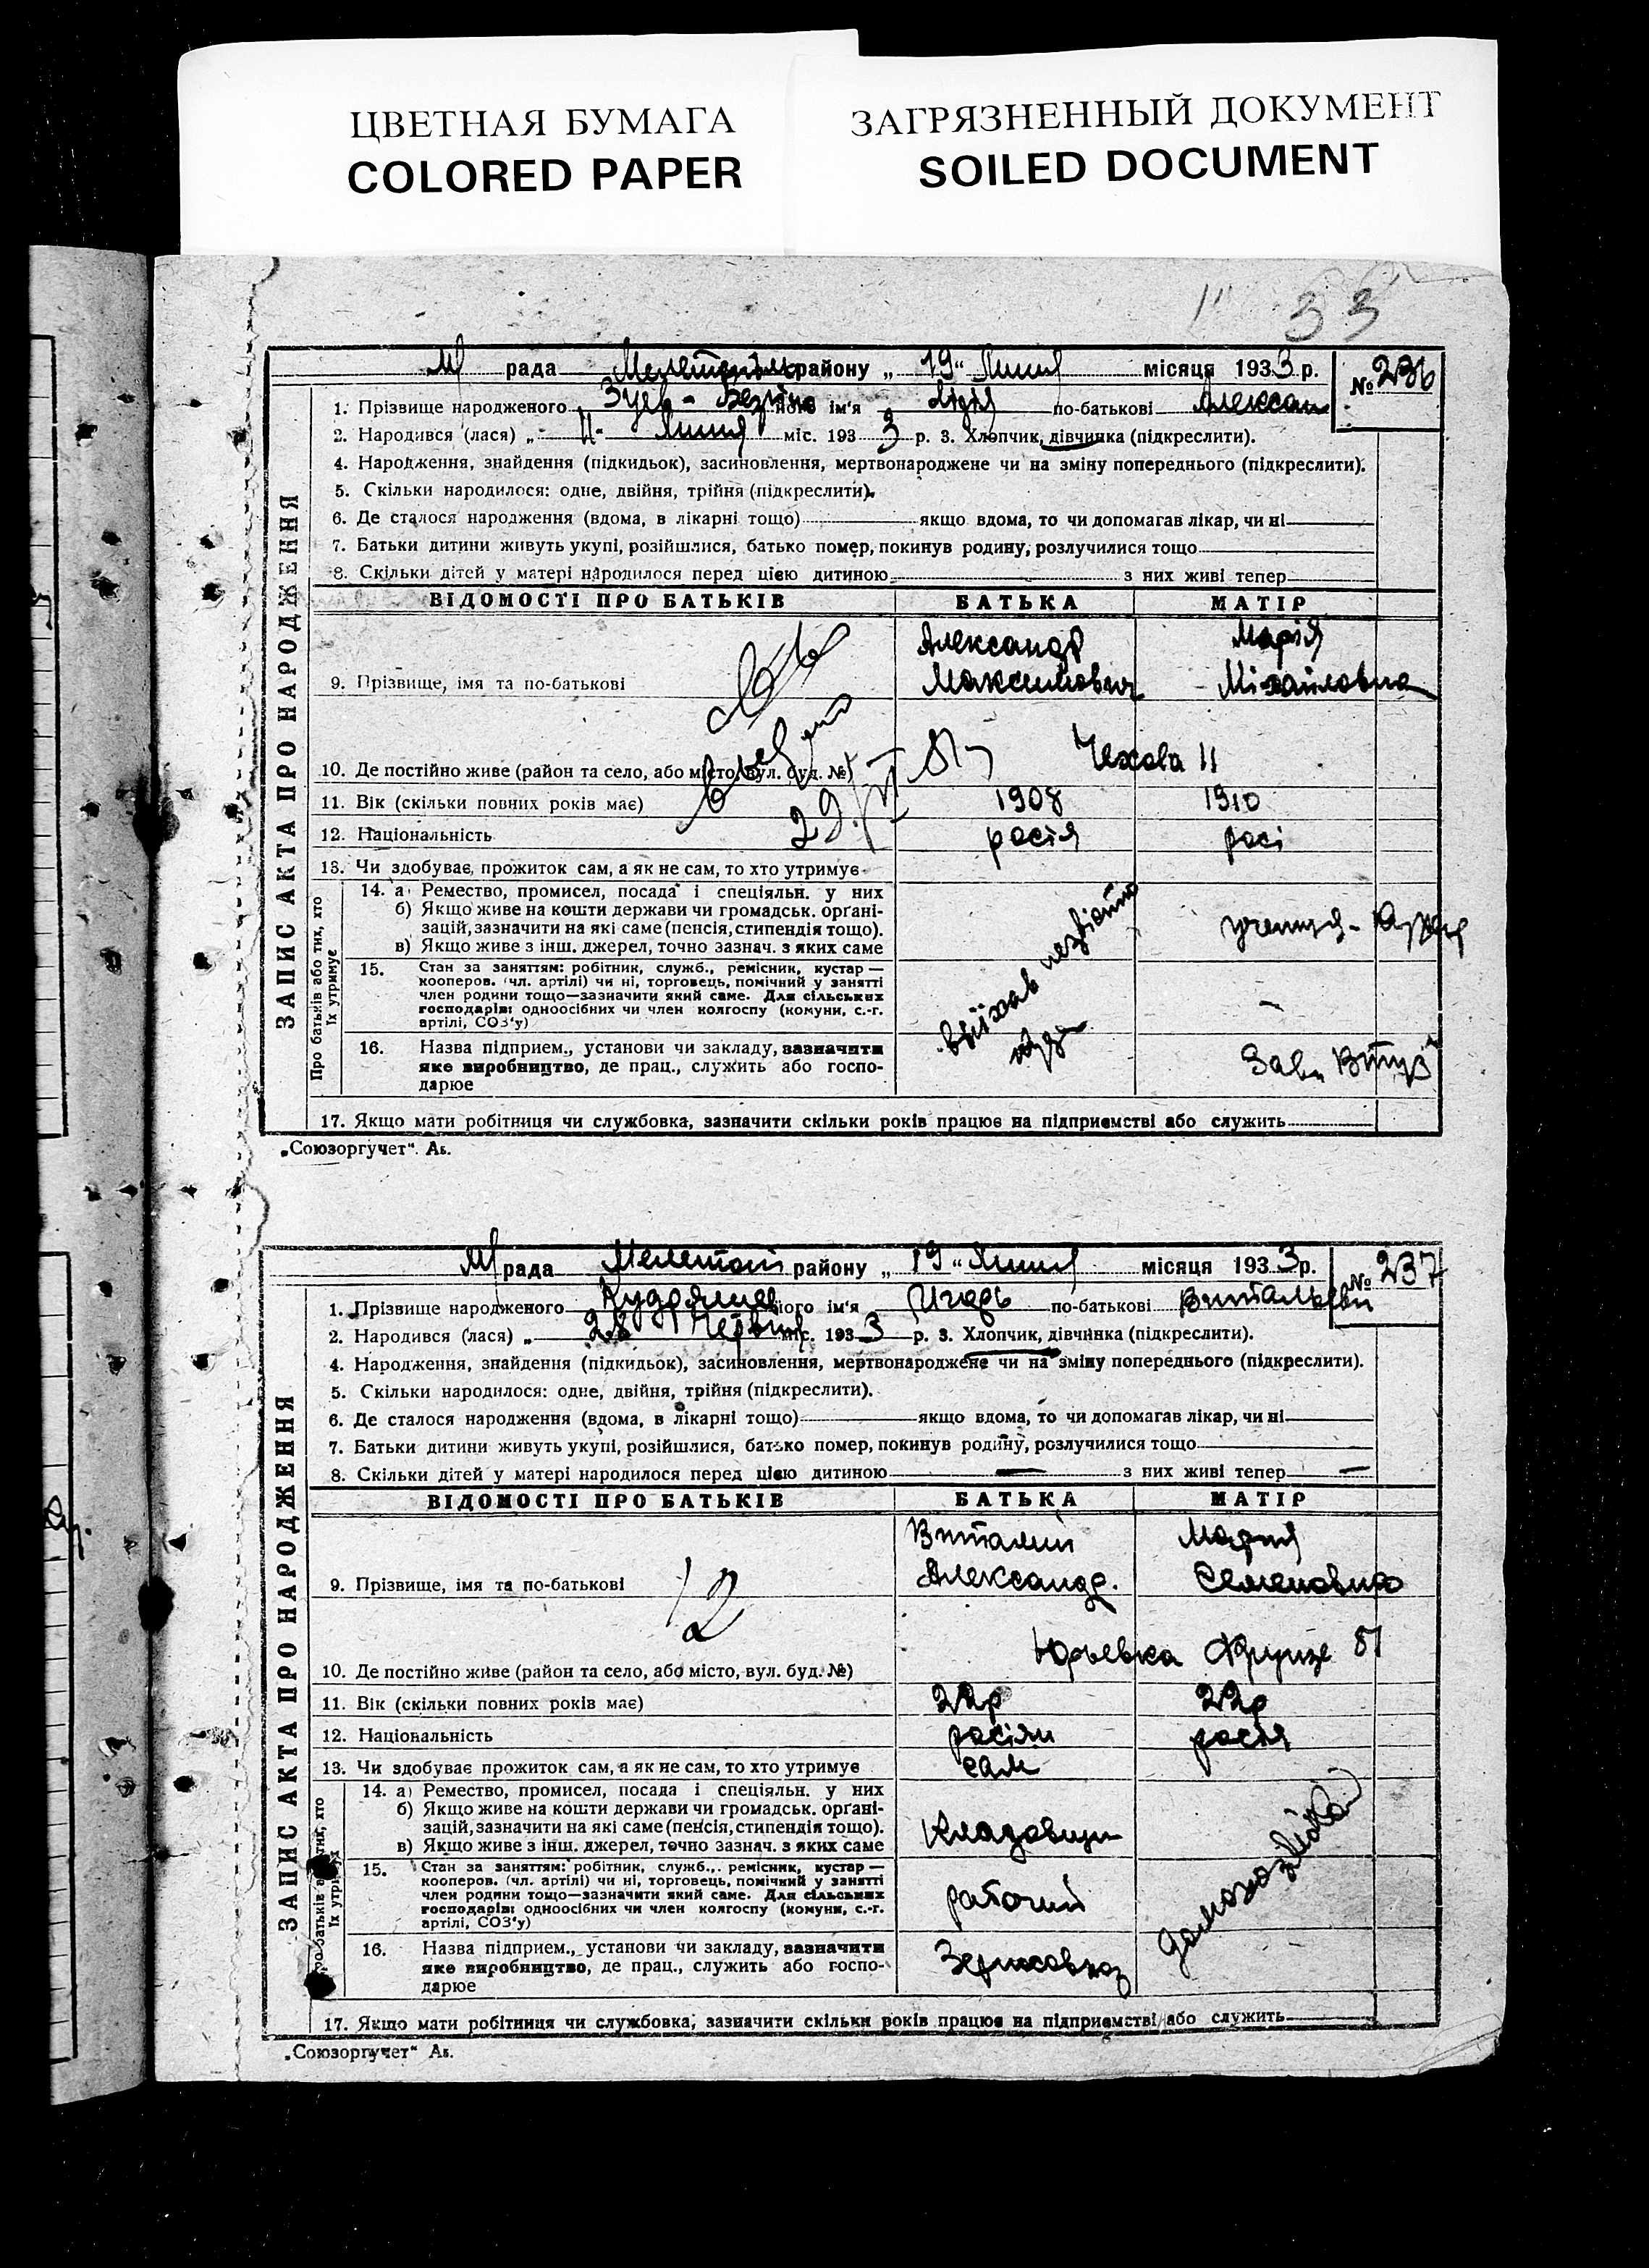 ЦВЕТНАЯ БУМАГА
COLORED PAPER
ЗАГРЯЗНЕННЫЙ ДОКУМЕНТ
SOILED DOCUMENT
33
М рада району „19“ Липня місяця 1933 р. № 236
1. Прізвище народженого Зуев - його ім'я Лідія по-батькові Алексан
2. Народився (лася) „ Липня міс. 1933 р. 3. Хлопчик, дівчинка (підкреслити).
4. Народження, знайдення (підкидьок), засиновлення, мертвонароджене чи на зміну попереднього (підкреслити).
5. Скільки народилося: одне, двійня, трійня (підкреслити).
6. Де сталося народження (вдома, в лікарні тощо) якщо вдома, то чи допомагав лікар, чи ні
7. Батьки дитини живуть укупі, розійшлися, батько помер, покинув родину, розлучилися тощо
8. Скільки дітей у матері народилося перед цією дитиною з них живі тепер
ЗАПИС АКТА ПРО НАРОДЖЕННЯ
ВІДОМОСТІ ПРО БАТЬКІВ БАТЬКА МАТІР
Александр Марія
9. Прізвище, імя та по-батькові Максимович Міхайловна
Чехова 11
10. Де постійно живе (район та село, або місто, вул. буд. №)
11. Вік (скільки повних років має) 1908 1910
29/VI
12. Національність росія росі
13. Чи здобуває прожиток сам, а як не сам, то хто утримує
Про батьків або тих, хто їх утримує
14. а) Ремество, промисел, посада і спеціяльн. у них
б) Якщо живе на кошти держави чи громадськ. органі-
зацій, зазначити на які саме (пенсія, стипендія тощо).
в) Якщо живе з інш. джерел, точно зазнач. з яких саме
учениця-
виїхав незвісно
куда
15. Стан за заняттям: робітник, служб., ремісник, кустар —
кооперов. (чл. артілі) чи ні, торговець, помічний у занятті
член родини тощо—зазначити який саме. Для сільських
господарів: одноосібних чи член колгоспу (комуни, с.-г.
артілі, СОЗ'у)
16. Назва підприєм., установи чи закладу, зазначити
яке виробництво, де прац., служить або госпо-
дарює
Зав.
17. Якщо мати робітниця чи службовка, зазначити скільки років працює на підприємстві або служить
„Союзоргучет“. Аs.
М рада Мелетопі району „19“ Липня місяця 1933 р. № 237
1. Прізвище народженого Кудряшов його ім'я Игорь по-батькові Витальеви
2. Народився (лася) „28 Червня міс. 1933 р. 3. Хлопчик, дівчинка (підкреслити).
4. Народження, знайдення (підкидьок), засиновлення, мертвонароджене чи на зміну попереднього (підкреслити).
5. Скільки народилося: одне, двійня, трійня (підкреслити).
6. Де сталося народження (вдома, в лікарні тощо) якщо вдома, то чи допомагав лікар, чи ні
7. Батьки дитини живуть укупі, розійшлися, батько помер, покинув родину, розлучилися тощо
8. Скільки дітей у матері народилося перед цією дитиною — з них живі тепер —
ЗАПИС АКТА ПРО НАРОДЖЕННЯ
ВІДОМОСТІ ПРО БАТЬКІВ БАТЬКА МАТІР
Виталий Мария
9. Прізвище, імя та по-батькові Александр. Семеновна
12
Юрьевка Фрунзе 81
10. Де постійно живе (район та село, або місто, вул. буд. №)
11. Вік (скільки повних років має) 22р 22р
12. Національність росіян росія
13. Чи здобуває прожиток сам, а як не сам, то хто утримує сам
Про батьків або тих, хто їх утримує
14. а) Ремество, промисел, посада і спеціяльн. у них
б) Якщо живе на кошти держави чи громадськ. органі-
зацій, зазначити на які саме (пенсія, стипендія тощо).
в) Якщо живе з інш. джерел, точно зазнач. з яких саме
Кладовщик
домохазяйка
15. Стан за заняттям: робітник, служб., ремісник, кустар —
кооперов. (чл. артілі) чи ні, торговець, помічний у занятті
член родини тощо—зазначити який саме. Для сільських
господарів: одноосібних чи член колгоспу (комуни, с.-г.
артілі, СОЗ'у)
рабочий
16. Назва підприєм., установи чи закладу, зазначити
яке виробництво, де прац., служить або госпо-
дарює
Зерносовхоз
17. Якщо мати робітниця чи службовка, зазначити скільки років працює на підприємстві або служить
„Союзоргучет“ Аs.